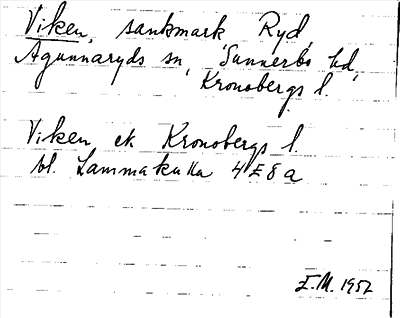 Viken, sankmark Ryd,
Agunnaryds sn, Sunnerbo hd,
Kronobergs l.
Viken ek Kronobergs l.
bl. Lammakulla 4E8a
E.M. 1952